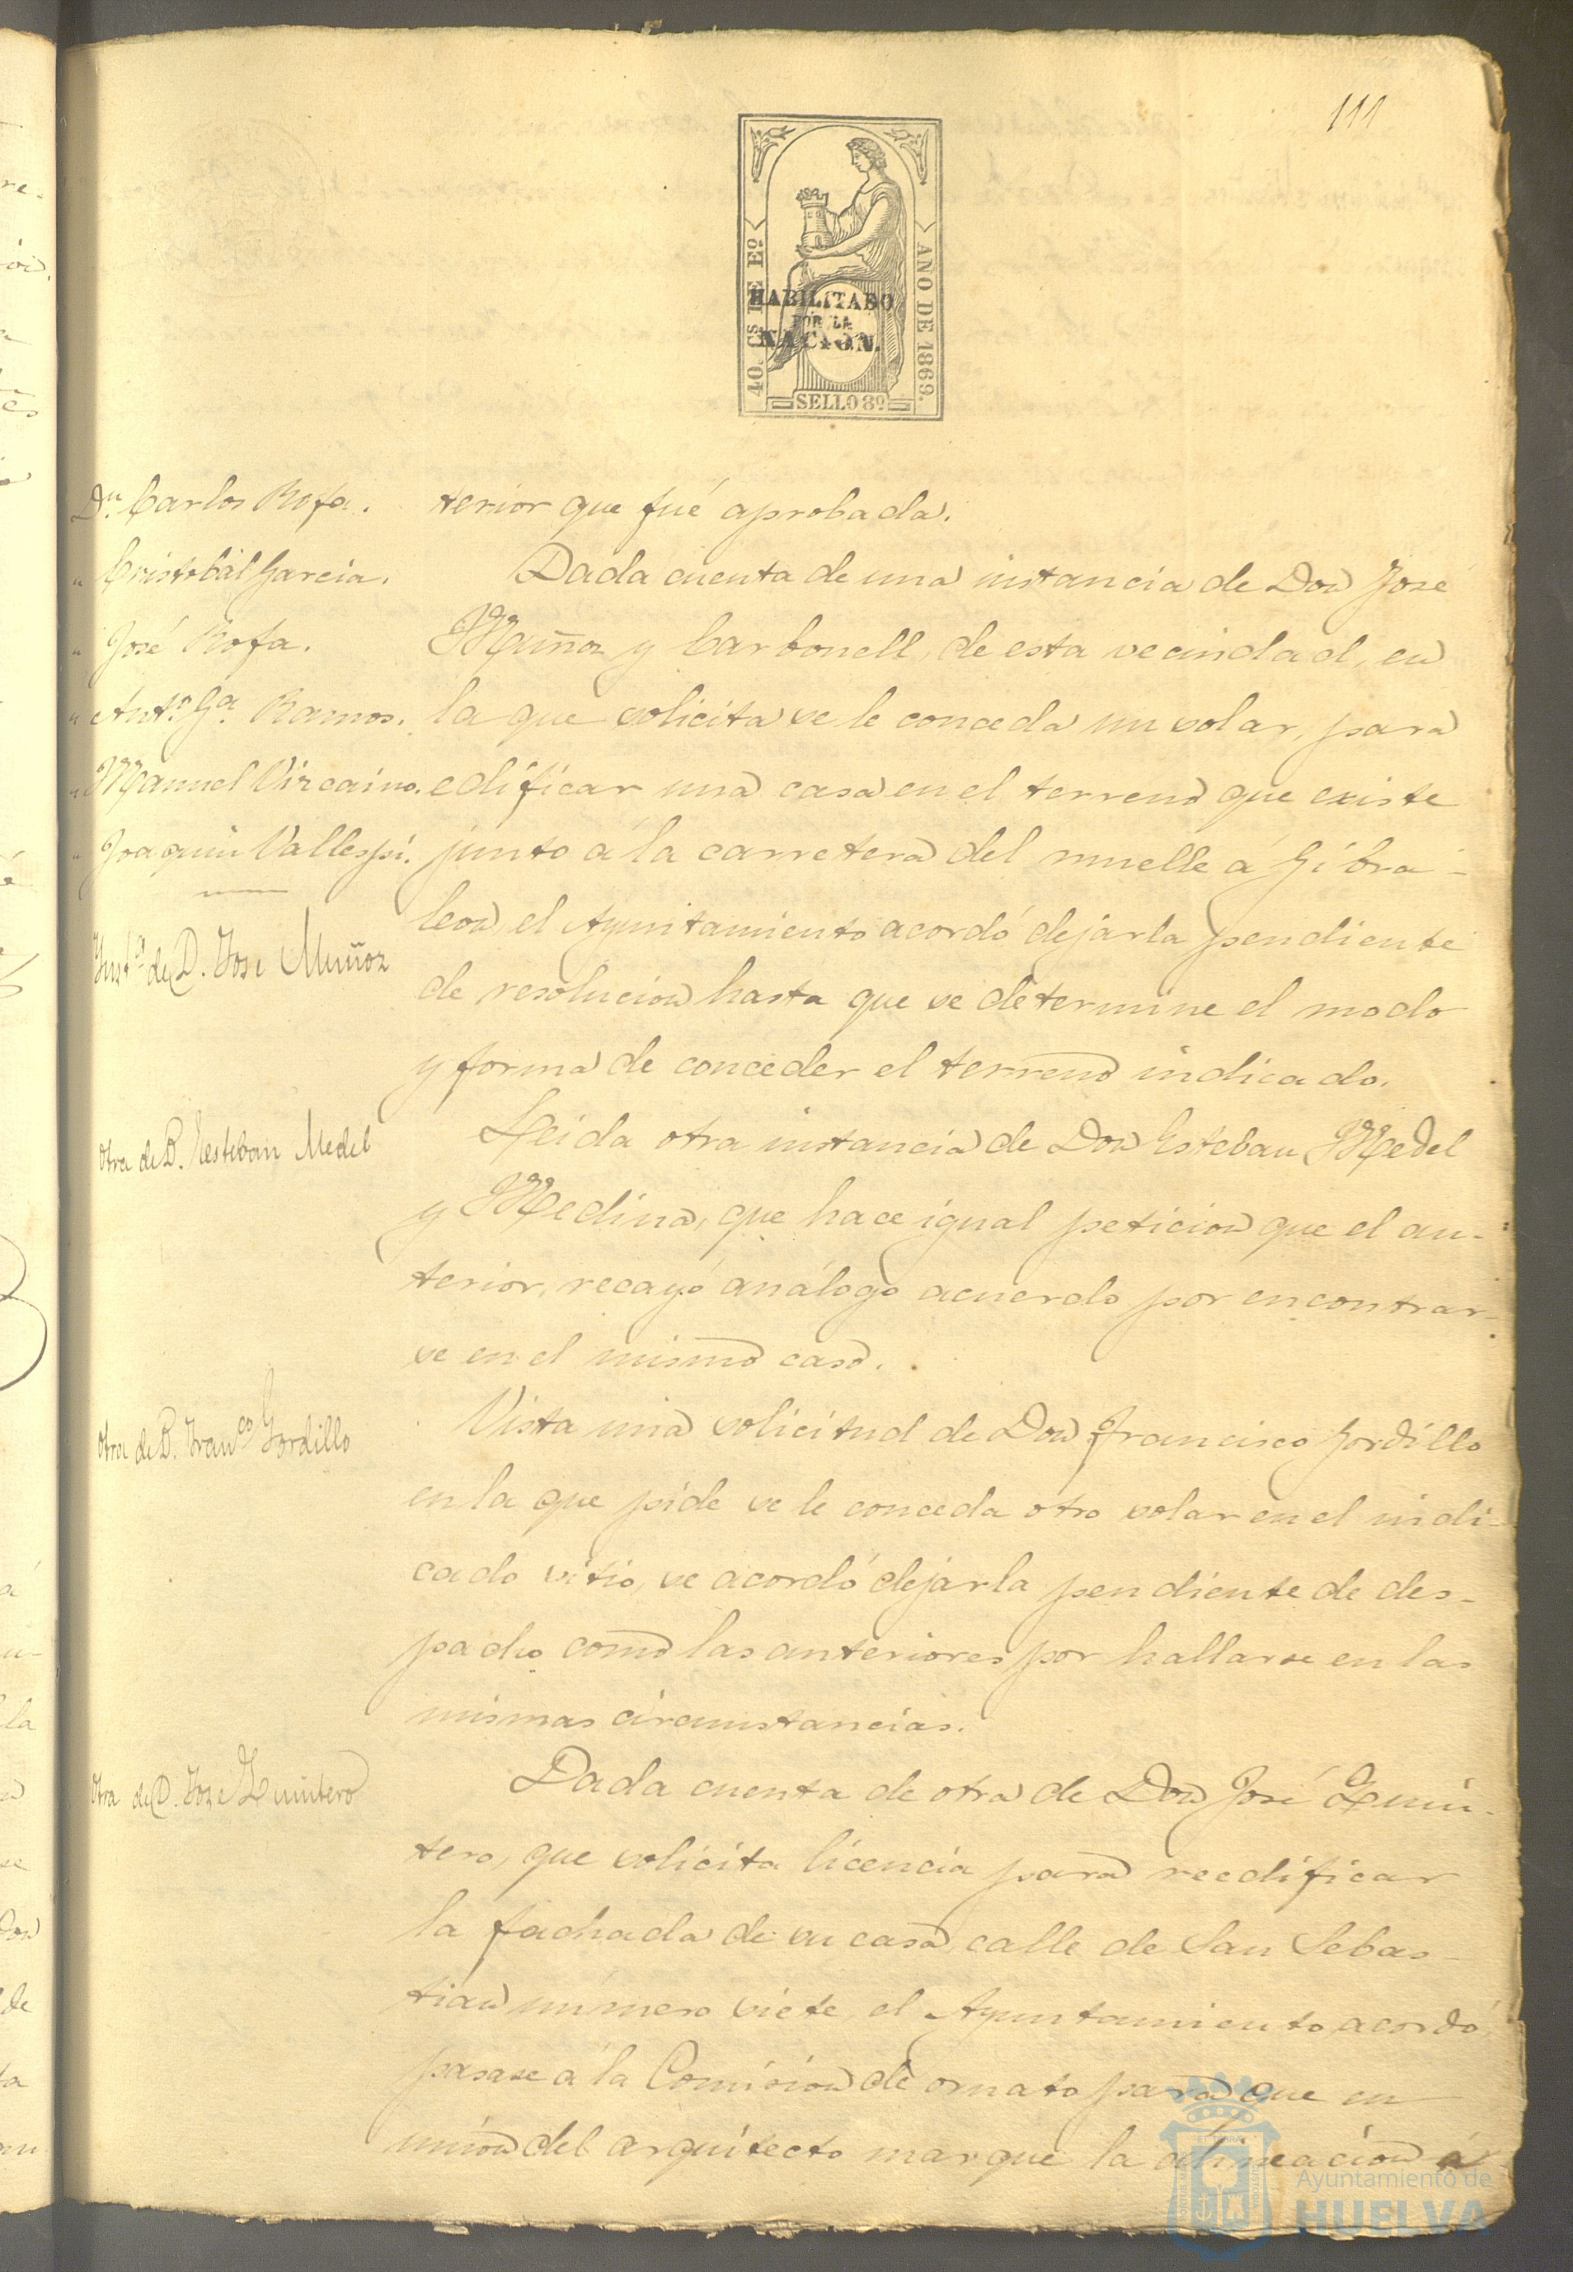 111
40 Cs DE Eo
AÑO DE 1869.
HABILITADO
POR LA
NACION.
SELLO 8º
Dn. Carlos Rofa.
" Cristobal Garcia.
" José Rofa.
" Antº. Gª. Ramos.
" Manuel Vizcaino.
" Joaquin Vallespi.
terior que fué aprobada.
Dada cuenta de una instancia de Don José
Muñoz y Carbonell, de esta vecindad, en
la que solicita se le conceda un solar, para
edificar una casa en el terreno que existe
junto á la carretera del muelle á Gibra-
leon, el Ayuntamiento acordó dejarla pendiente
de resolucion hasta que se determine el modo
y forma de conceder el terreno indicado.
Instª de D. Jose Muñoz
Leida otra instancia de Don Esteban Medel
y Medina, que hace igual peticion que el an-
terior, recayó análogo acuerdo por encontrar-
se en el mismo caso.
Otra de D. Esteban Medel
Vista una solicitud de Don Francisco Gordillo
en la que pide se le conceda otro solar en el indi-
cado sitio, se acordó dejarla pendiente de des-
pacho como las anteriores por hallarse en las
mismas circunstancias.
Otra de D. Franco Gordillo
Dada cuenta de otra de Don José Quin-
tero, que solicita licencia para reedificar
la fachada de su casa calle de San Sebas-
tian número siete, el Ayuntamiento acordó,
pasase á la Comision de ornato para que en
union del arquitecto marque la alineacion á
Otra de D. Jose Quintero
Ayuntamiento de
HUELVA